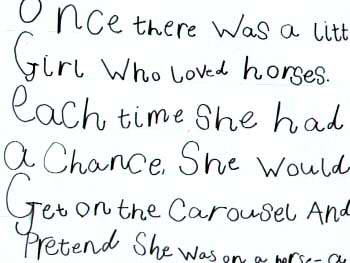 Once there was a litt
Girl who loved horses.
Each time She had
a Chance, She would
Get on the Carousel And
Pretend She was on a horse-a